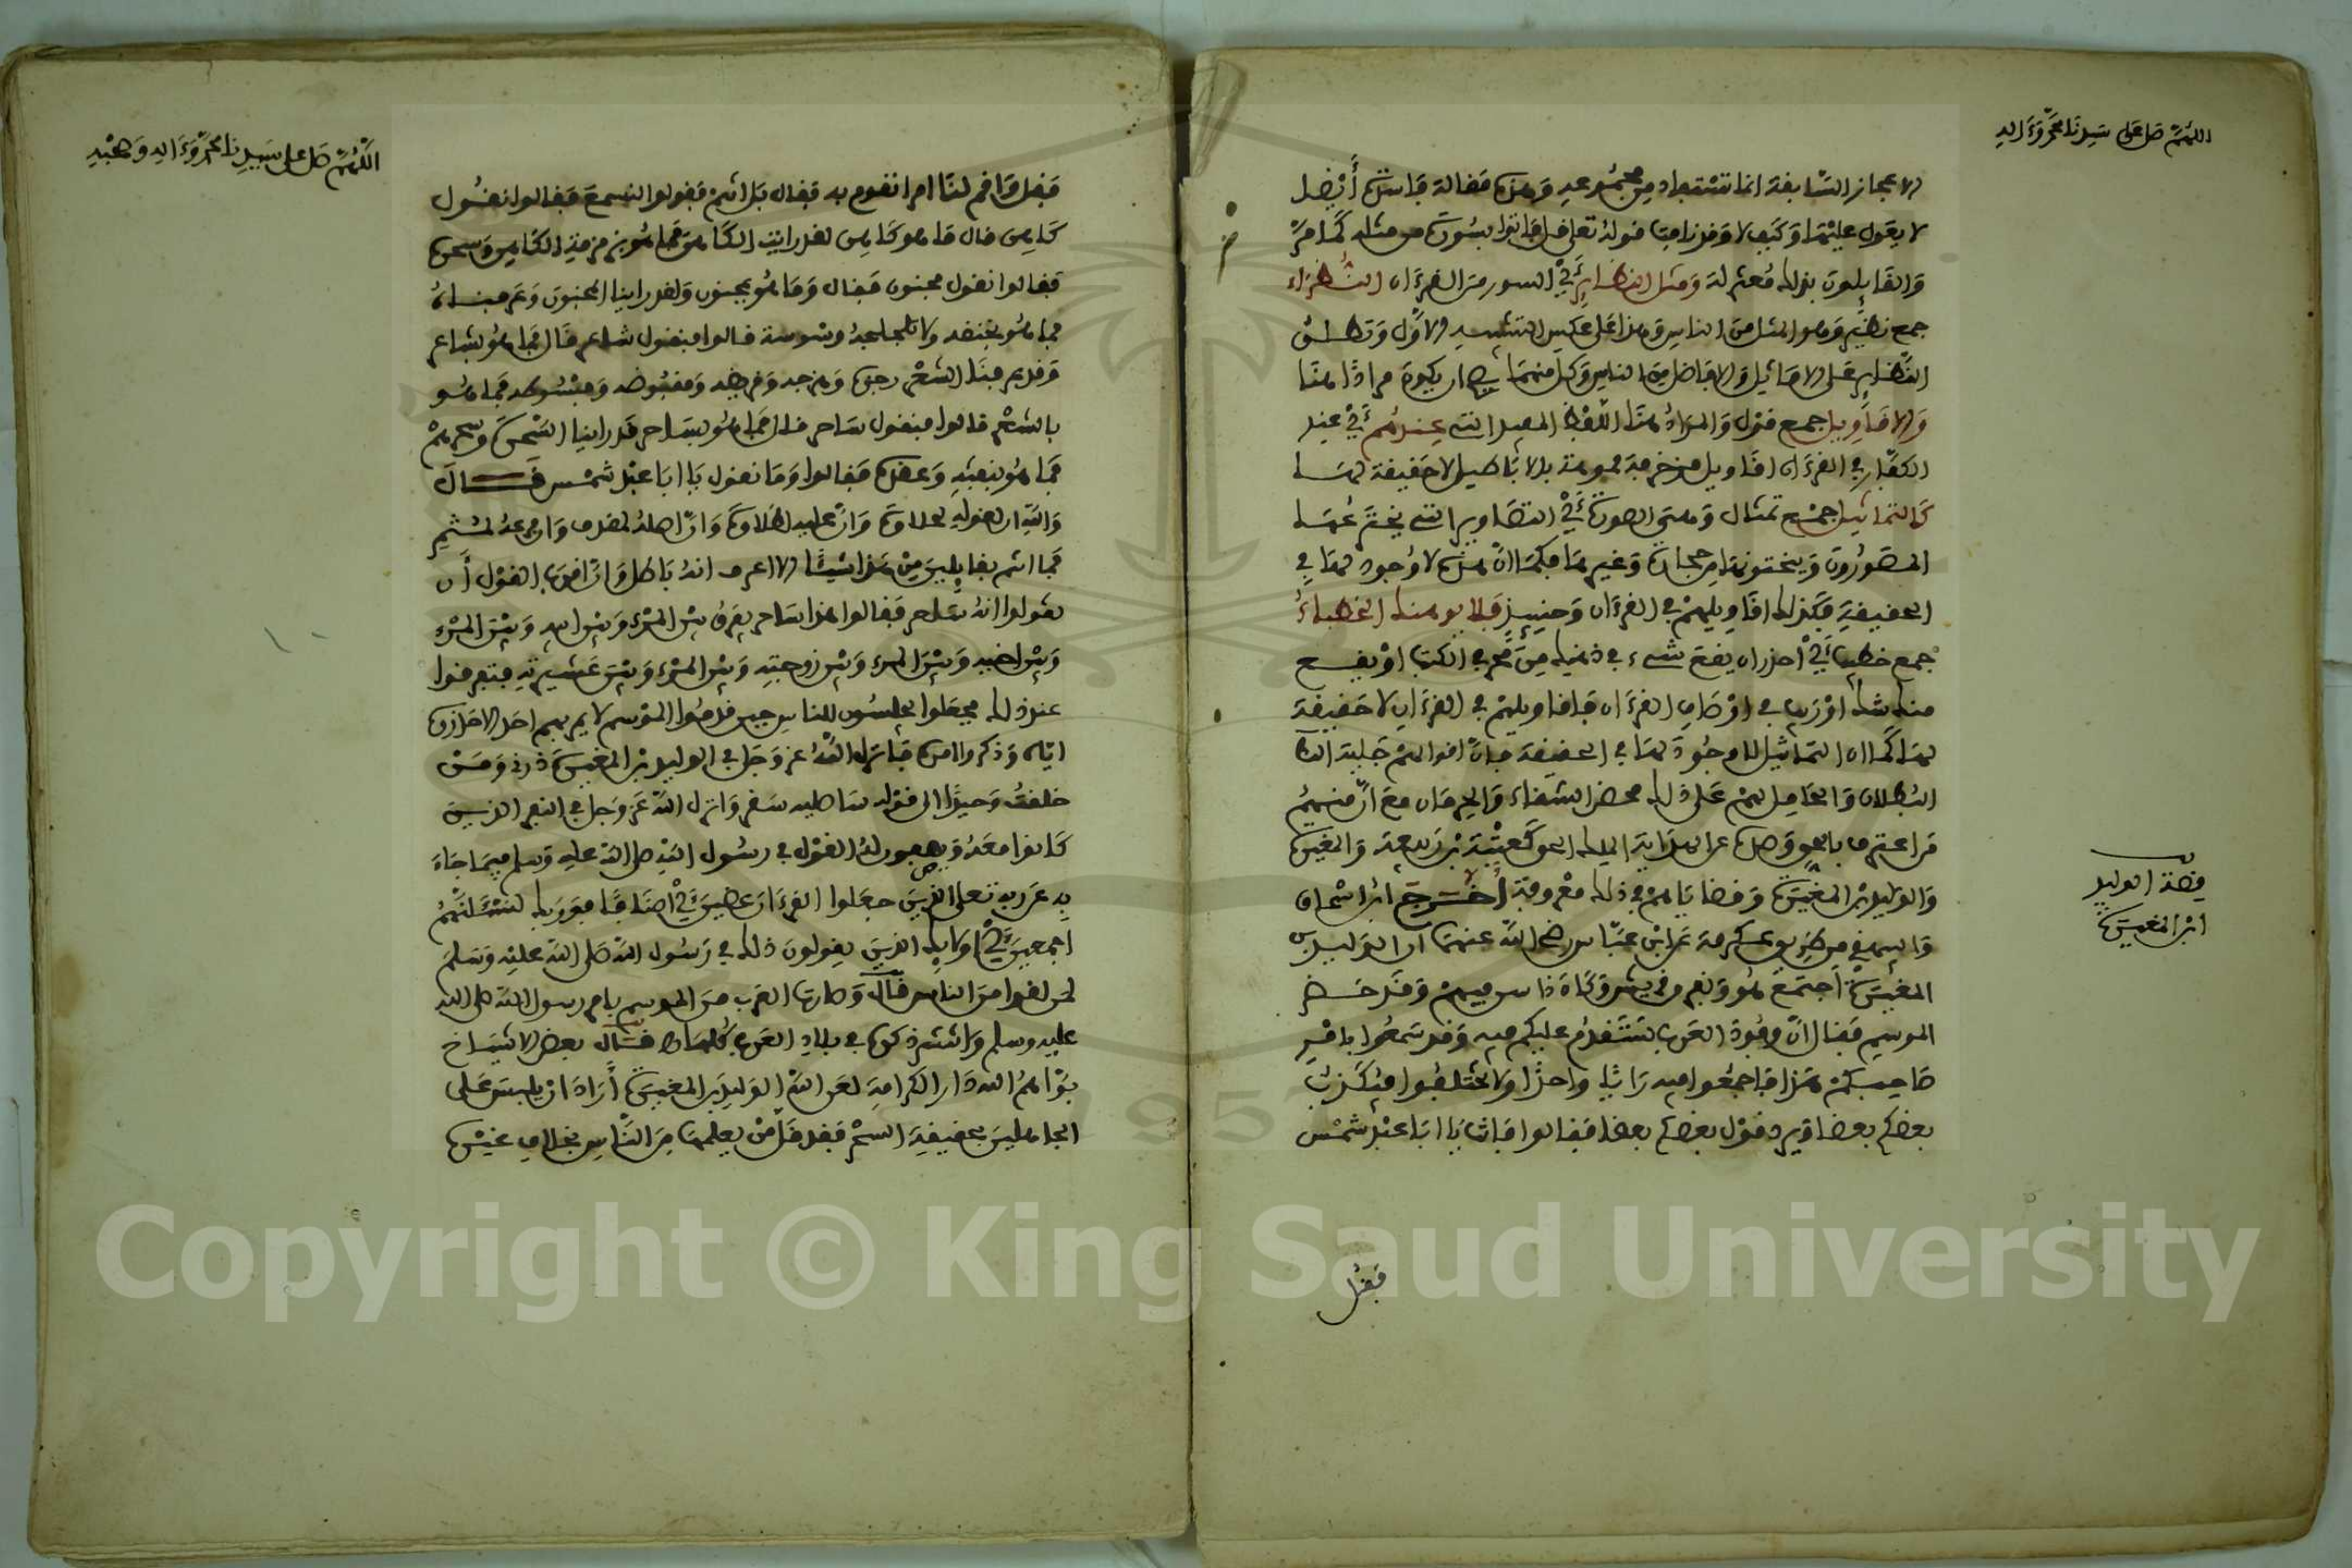 اللهم صل على سيدنا محمد وءاله
الاعجاز السابقة انما تستفاد من مجموعه وهذه مقالة فاسدة أيضا
لا يعول عليها وكيف لا وقد نافت قوله تعلى قل فاتوا بسورة من مثله كما مر
والقايلون بذلك معتزلة ومثل النظاير أي السور من القرءان النظراء
جمع نظير وهو المثل من الناس وهذا على عكس التشبيه الاول وتطلق
النظاير على الاماثل والافاضل من الناس وكل منهما يصح ان يكون مرادا هنا
والاقاويل جمع قول والمراد هنا اللفظ المفيد التي عندهم أي عند
الكفار في القرءان اقاويل مزخرفة مموهة بالاباطيل لا حقيقة لها
كالتماثيل جمع تمثال وهي الصورة أي التصاوير التي يخترعها
المصورون وينحتونها من حجارة وغيرها فكما ان هذه لا وجود لها في
الحقيقة فكذلك اقاويلهم في القرءان وحينيذ فلا يوهمنك الخطباء
جمع خطيب أي احذر ان يقع شيء في ذهنك من في الكتب او يقع
منك شك او ريب في اوصاف القرءان فاقاويلهم في القرءان لا حقيقة
لها كما ان التماثيل لا وجود لها في الحقيقة فان اقوالهم جلية
البطلان والحامل لهم على ذلك محض الشقاء والحرمان مع ان منهم
من اعترف بالحق وصد عن الهداية الى الحق كعتبة بن ربيعة والمغيرة
والوليد بن المغيرة وقضاياهم في ذلك معروفة اخرج ابن اسحاق
والبيهقي من طريق عكرمة عن ابن عباس رضي الله عنهما ان الوليد بن
المغيرة اجتمع هو ونفر من قريش وكان ذا سن فيهم وقد حضر
الموسم فقال ان وفود العرب ستقدم عليكم فيه وقد سمعوا بامر
صاحبكم هذا فاجمعوا فيه رايا واحدا ولا تختلفوا فيكذب
بعضكم بعضا ويرد قول بعضكم بعضا فقالوا فانت يا ابا عبد شمس
فقل
قصة الوليد
ابن المغيرة
اللهم صل على سيدنا محمد وءاله وصحبه
فقل واقم لنا امرا نقوم به فقال بل انتم فقولوا لنسمع فقالوا نقول
كاهن قال ما هو كاهن لقد رايت الكاهن فما هو بزمزمة الكاهن وسحره
فقالوا نقول مجنون فقال وما هو بمجنون ولقد راينا الجنون وعرفناه
فما هو بخنقه ولا تخلجه ووسوسة قالوا فنقول شاعر قال فما هو بشاعر
وقد عرفنا الشعر رجزه وهزجه وقريضه ومقبوضه ومبسوطه فما هو
بالشعر قالوا فنقول ساحر قال فما هو بساحر قد راينا السحرة وسحرهم
فما هو بنفثه وعقده فقالوا وما نقول يا ابا عبد شمس قال
والله ان لقوله لحلاوة وان عليه لطلاوة وان اصله لمغدق وان فرعه لمثمر
فما انتم بقايلين من هذا شيئا الا اعرف انه باطل وان اقرب القول أن
تقولوا انه ساحر فقالوا هذا ساحر يفرق بين المرء وبين ابيه وبين المرء
وبين اخيه وبين المرء وبين زوجته وبين المرء وبين عشيرته فتفرقوا
عند ذلك فجعلوا يجلسون للناس حين قدموا الموسم لا يمر بهم احد الا حذروه
اياه وذكروا امره فانزل الله عز وجل في الوليد بن المغيرة ذرني ومن
خلقت وحيدا الى قوله ساصليه سقر وانزل الله عز وجل في النفر الذين
كانوا معه ويصفون له القول في رسول الله صلى الله عليه وسلم فيما جاء
به عن ربه تعلى الذين جعلوا القرءان عضين أي اصنافا فوربك لنسئلنهم
اجمعين أي اولايك الذين يقولون ذلك في رسول الله صلى الله عليه وسلم
لمن لقوا من الناس قال وصارت العرب من الموسم بامر رسول الله صلى الله
عليه وسلم وانتشر ذكره في بلاد العرب كلها قال بعض الاشياخ
بوأهم الله دار الكرامة لعن الله الوليد بن المغيرة أراد ان يلبس على
الجاهلين بحقيقة السحر فقد قل من يعلمها من الناس بخلاف غيره